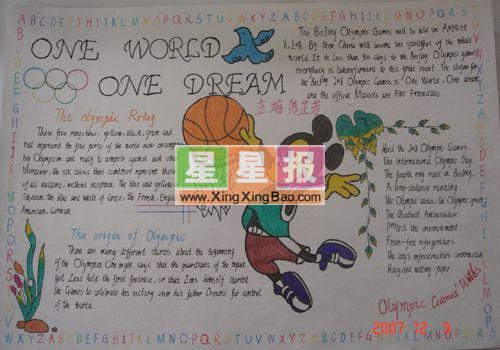 A B C D E F G H I J K L M N O P Q R S T U V W X Y Z
ONE WORLD
ONE DREAM
The Beijing Olympic Games will be held on August
8, 2008. By then China will become the spotlight of the whole
world. It is less than days to the Beijing Olympic games
everybody is looking forward to this great event. The slogan for
the Beijing 2008 Olympic Games is "One World, One dream"
and the official Mascots are Five Friendlies.
主编:陈芷若
The Olympic Rring
These five rings: blue, yellow, black, green and
red represent the five parts of the world now
by Olympism and ready to compete against each other.
Moreover, the six colors thus combined represent those
of all nations, without exception. The blue and yellow of
Sweden, the blue and white of Greece, the French, English
American, German
星星报
www.XingXingBao.com
The origin of Olympic
There are many different stories about the beginning
of the Olympics. One myth says that the guardians of the infant
god Zeus held the first footrace, or that Zeus himself started
the Games to celebrate his victory over his father Cronus for control
of the world.
Host the 2008 Olympic Games.
The International Olympic Day.
The fourth ring road in Beijing.
A long-distance running.
The Olympic ideals; the Olympic spirit
The Goodwill Ambassador.
Protect the environment.
Freon-free refrigerators.
The city's infrastructure construction
Recycled writing paper.
Olympic Games' Words
2007.12.9